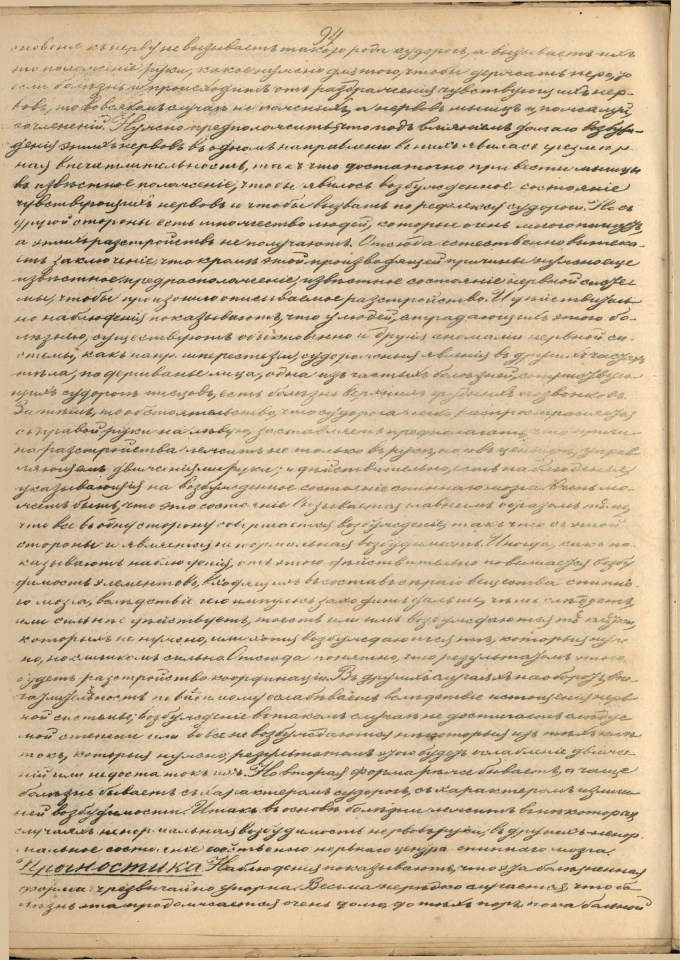 94
къ нерву не вызываетъ такого рода судорогъ, а вызываетъ ихъ
то положеніе руки, какое нужно для того, чтобы держать перо,
если болѣзнь и происходитъ отъ раздраженія чувствующихъ нер-
вовъ, то во всякомъ случаѣ не кожныхъ, а нервовъ мышцъ и, пожалуй,
сочлененій. Нужно предположить, что подъ вліяніемъ долгаго возбуж-
денія этихъ нервовъ въ одномъ направленіи въ нихъ явилась чрезмѣр-
ная впечатлительность, такъ что достаточно привести мышцы
въ извѣстное положеніе, чтобы явилось возбужденное состояніе
чувствующихъ нервовъ и чтобы вызвать по рефлексу судороги. Но съ
другой стороны есть множество людей, которые очень много пишутъ,
а этихъ разстройствъ не получаютъ. Отсюда естественно вытека-
етъ заключеніе, что кромѣ этой производящей причины нужно еще
извѣстное предрасположеніе, извѣстное состояніе нервной систе-
мы, чтобы произошло описываемое разстройство. И дѣйствитель-
но наблюденія показываютъ, что у людей, страдающихъ этою бо-
лѣзнію, существуютъ обыкновенно и другія аномаліи нервной си-
стемы, какъ напр. гиперестезіи, судорожныя явленія въ другихъ частяхъ
тѣла, подергиванье лица; одна изъ частыхъ болѣзней,
судорогъ писцовъ, есть болѣзнь верхнихъ шейныхъ позвонковъ.
Затѣмъ, то обстоятельство, что судорога легко распространяется
съ правой руки на лѣвую, заставляетъ предполагать, что причи-
на разстройства лежитъ не только въ рукѣ, но и въ центрѣ, управ-
ляющемъ движеніями руки; и дѣйствительно, есть наблюденія
указывающія на возбужденное состояніе спиннаго мозга. Очень мо-
жетъ быть, что это состояніе вызывается главнымъ образомъ тѣмъ,
что все въ одну сторону совершается возбужденіе, такъ что съ этой
стороны и является ненормальная возбудимость. Иногда, какъ по-
казываютъ наблюденія, отъ этого дѣйствительно повышается возбу-
димость элементовъ, входящихъ въ составъ сѣраго вещества спинна-
го мозга, вслѣдствіе чего импульсъ заходитъ дальше, чѣмъ слѣдуетъ,
или сильнѣе дѣйствуетъ, то есть или имъ возбуждаются тѣ клѣтки,
которыхъ не нужно, или хотя возбуждаются тѣ, которыя нуж-
но, но слишкомъ сильно. Отсюда понятно, что результатомъ этого
будетъ разстройство координаціи. Въ другихъ случаяхъ наоборотъ воз-
повидимому ослабѣваетъ вслѣдствіе истощенія нерв-
ной системы; возбужденіе въ такомъ случаѣ не достигаетъ
степени или вовсе не возбуждаются нѣкоторыя изъ тѣхъ клѣ-
токъ, которыя нужно; результатомъ этого будетъ ослабленіе движе-
ній или недостатокъ ихъ. Но вторая форма рѣже бываетъ, а чаще
болѣзнь бываетъ съ характеромъ судорогъ, съ характеромъ излиш-
ней возбудимости. Итакъ въ основѣ болѣзни лежитъ въ нѣкоторыхъ
случаяхъ ненормальная возбудимость нервовъ руки, въ другихъ ненор-
мальное состояніе собственно нервнаго центра спиннаго мозга.
Прогностика. Наблюденія показываютъ, что эта болѣзненная
форма чрезвычайно упорна. Весьма нерѣдко случается, что бо-
лѣзнь эта продолжается очень долго, до тѣхъ поръ, пока больной